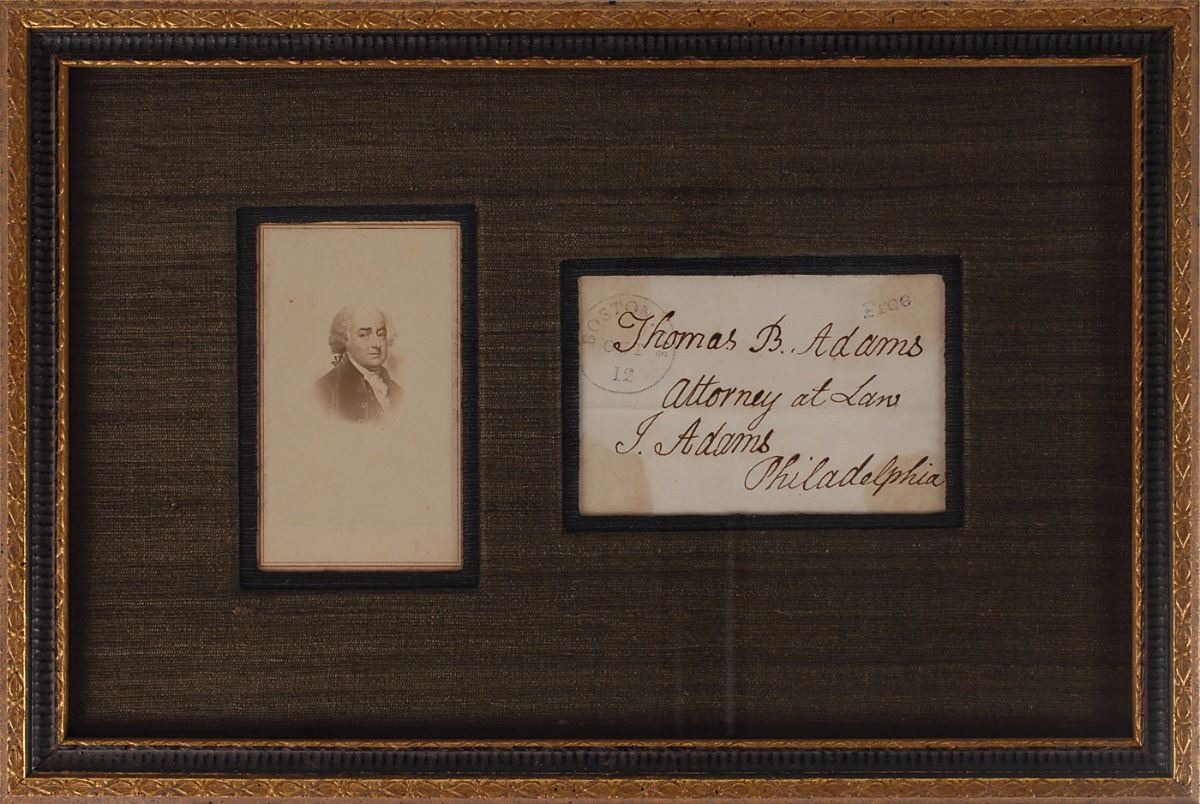 BOSTON
12
Free
Thomas B. Adams
Attorney at Law
J. Adams
Philadelphia